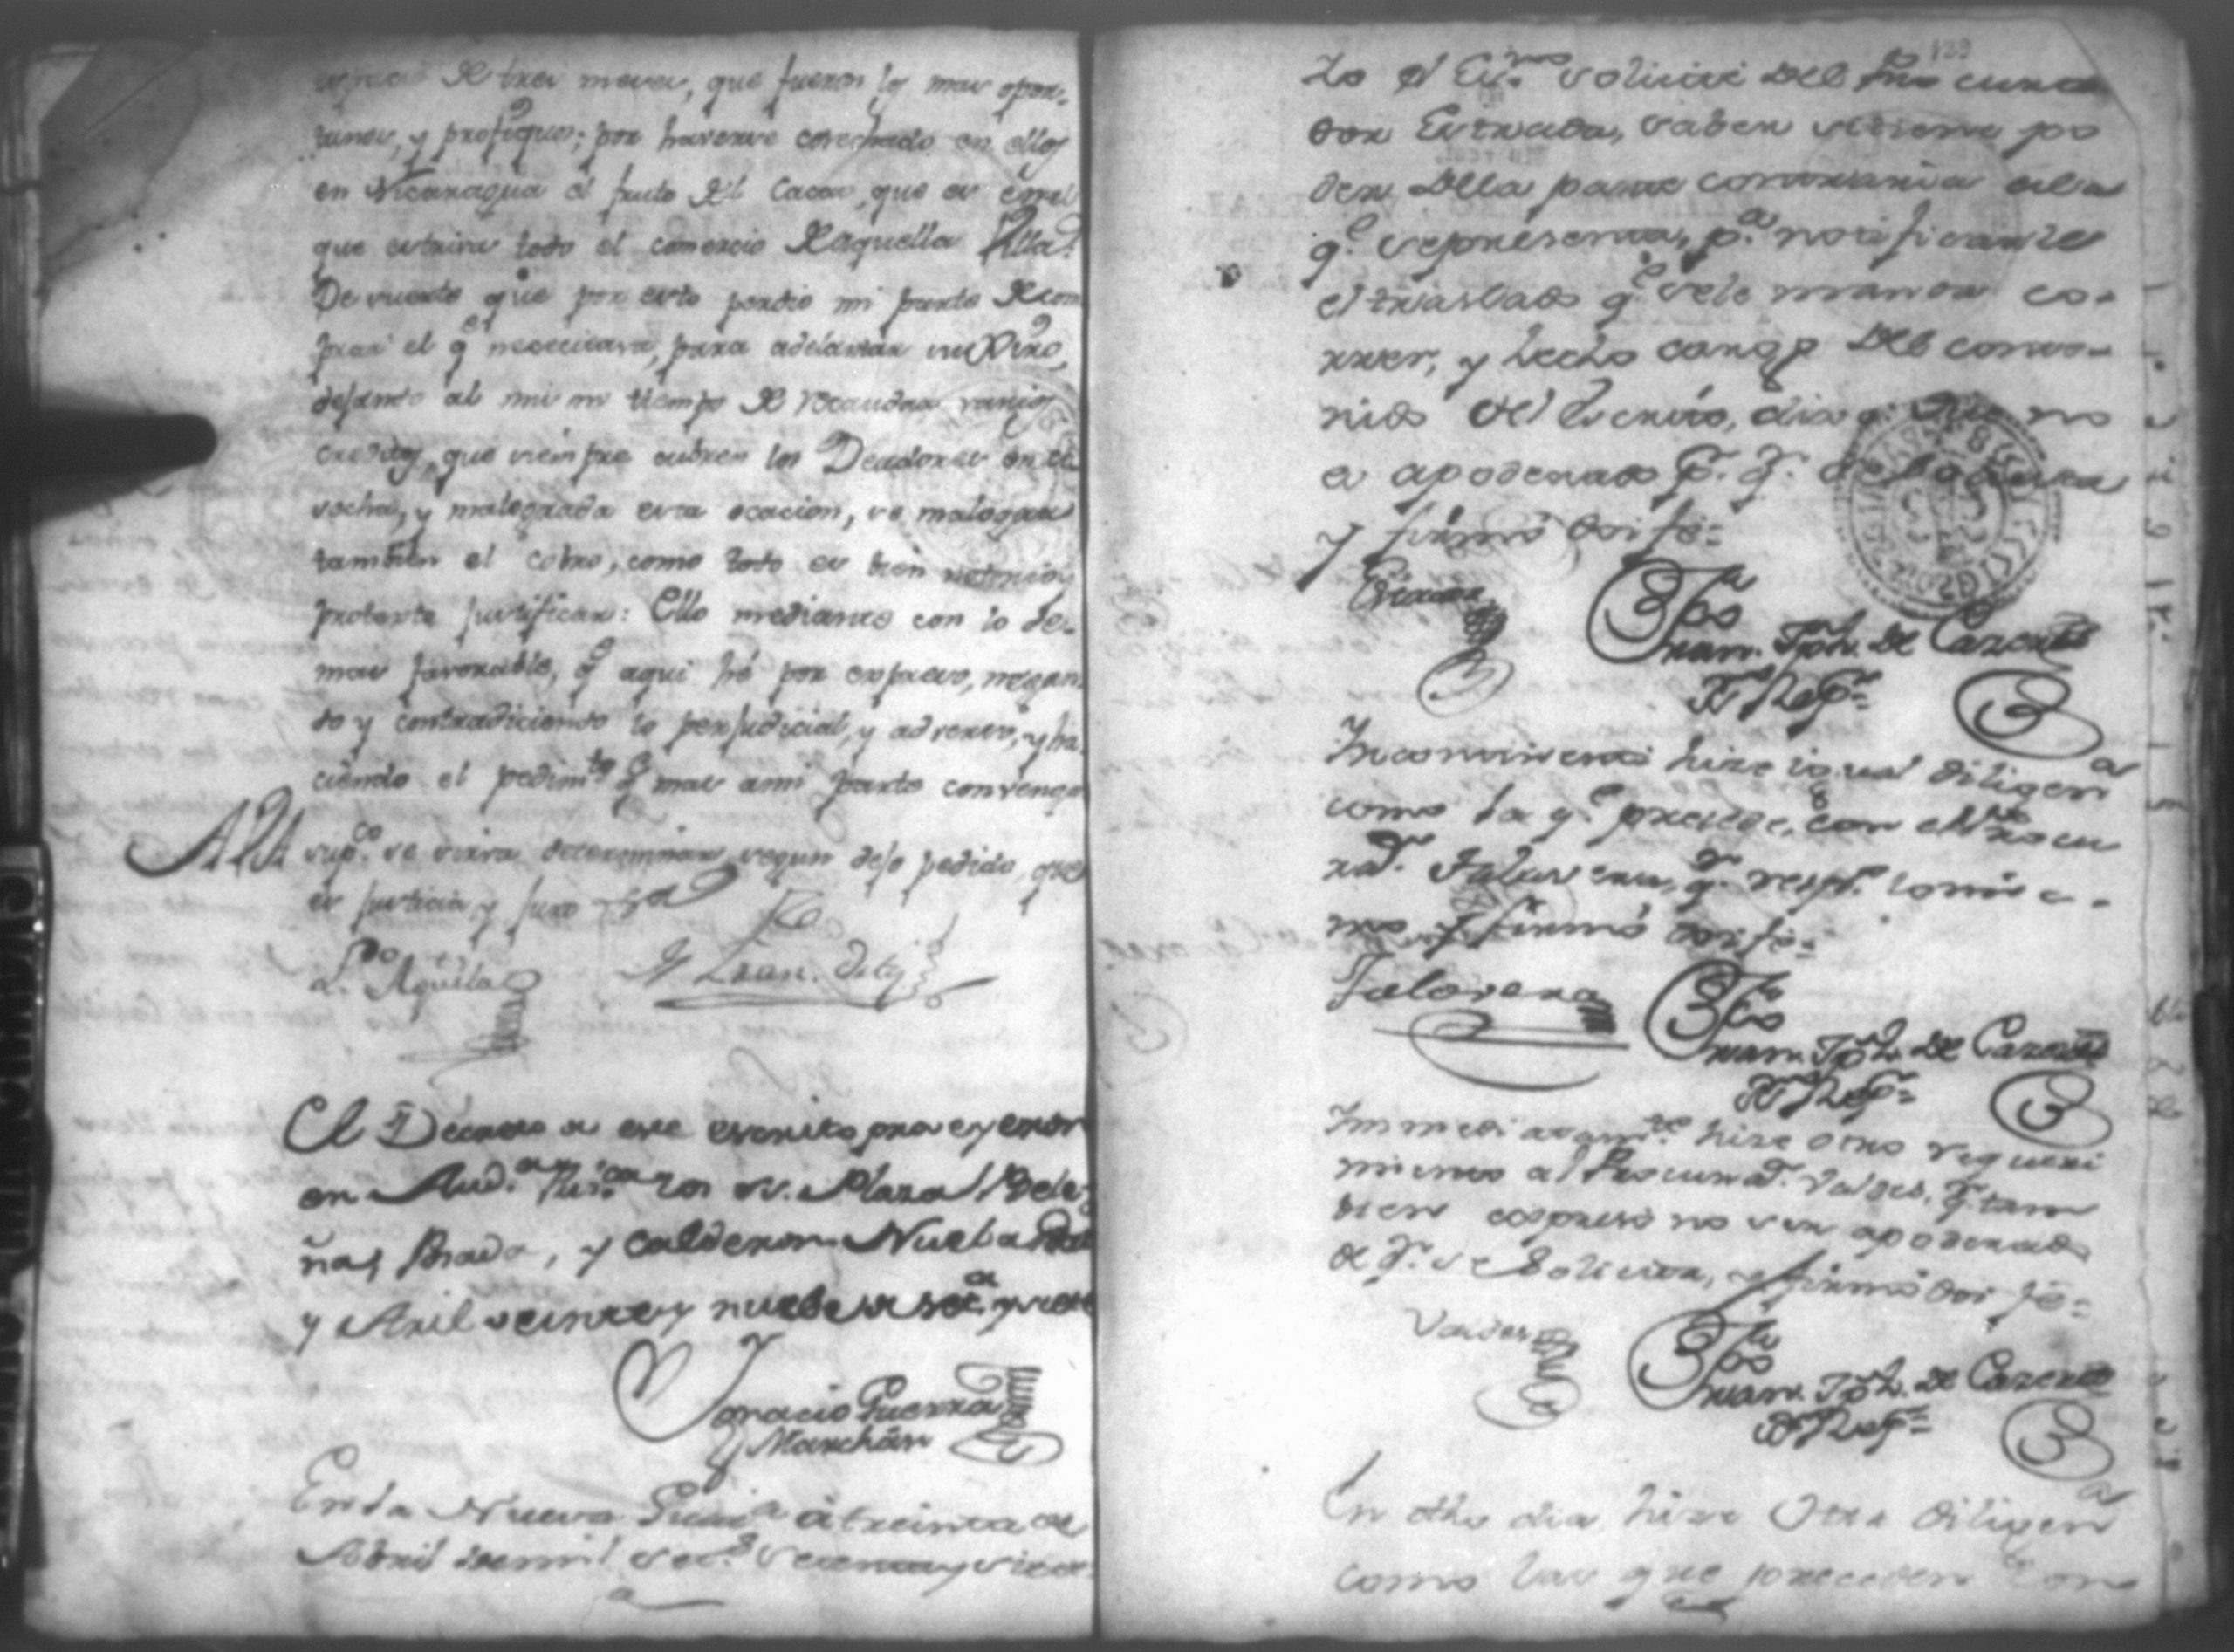 de tres meses, que fueron los mas opor-
tunos, y profiquos; por haverse cosechado en ellos
en Nicaragua el fruto del Cacao, que es en el
que estriva todo el comercio de aquella Villa:
De suerte que por esto perdio mi parte de com
prar el q.e necesitava, para adelantar su Giro,
dejando al mismo tiempo de recaudar varios
creditos, que siempre cubren los Deudores en co
secha, y malograda esta ocacion, se malogra
tambien el cobro, como todo es bien notorio, y
protexto justificar: Ello mediante con lo de-
mas favorable, q.e aqui hé por expreso, negan-
do y contradiciendo lo perjudicial, y adverso, y ha-
ciendo el pedim.to q.e mas a mi parte convenga
A V A sup.co se sirva determinar segun dejo pedido, que
es justicia, y juro
L.do Aguilar
El Decreto de este escrito proveyeron
en Aud.a pu.ca los SS. Plaza, Bele-
ña, Prado, y Calderon Nueba Gua
y Abril veinte y nuebe de set.a y siete
Ignacio Guerra
y Marchán
En la Nueva Guat.a á treinta de
Abril de mil setec.s setenta y siete
yo el Es.no solicité del Pro cura
dor Estrada, saber si tiene po
der de la parte contraria a la
q.e representa, p.a notificarle
el traslado q.e se le manda co-
rrer, y hecho cargo del conte-
nido del Escrito, dixo q.e no
es apoderado p.r q.n se solicita
y firmó doi fé=
Estrada
Juan Jph. de Carcate
R.r
Incontinenti hize igual diligen.a
como la q.e precede, con el Procu
rad.r Talavera, q.n resp.e lo mis-
mo y firmó doi fé=
Talavera
Juan Jph. de Carcate
R.r
Immediatam.te hize otro requeri
miento al Procurad.r Valdes, q.n tam
bien expresó no ser apoderado
de q.n se solicita, y firmó doi fé=
Valdes
Juan Jph. de Carcate
R.r
En dho dia hize Otra diligen.a
como las que preceden con